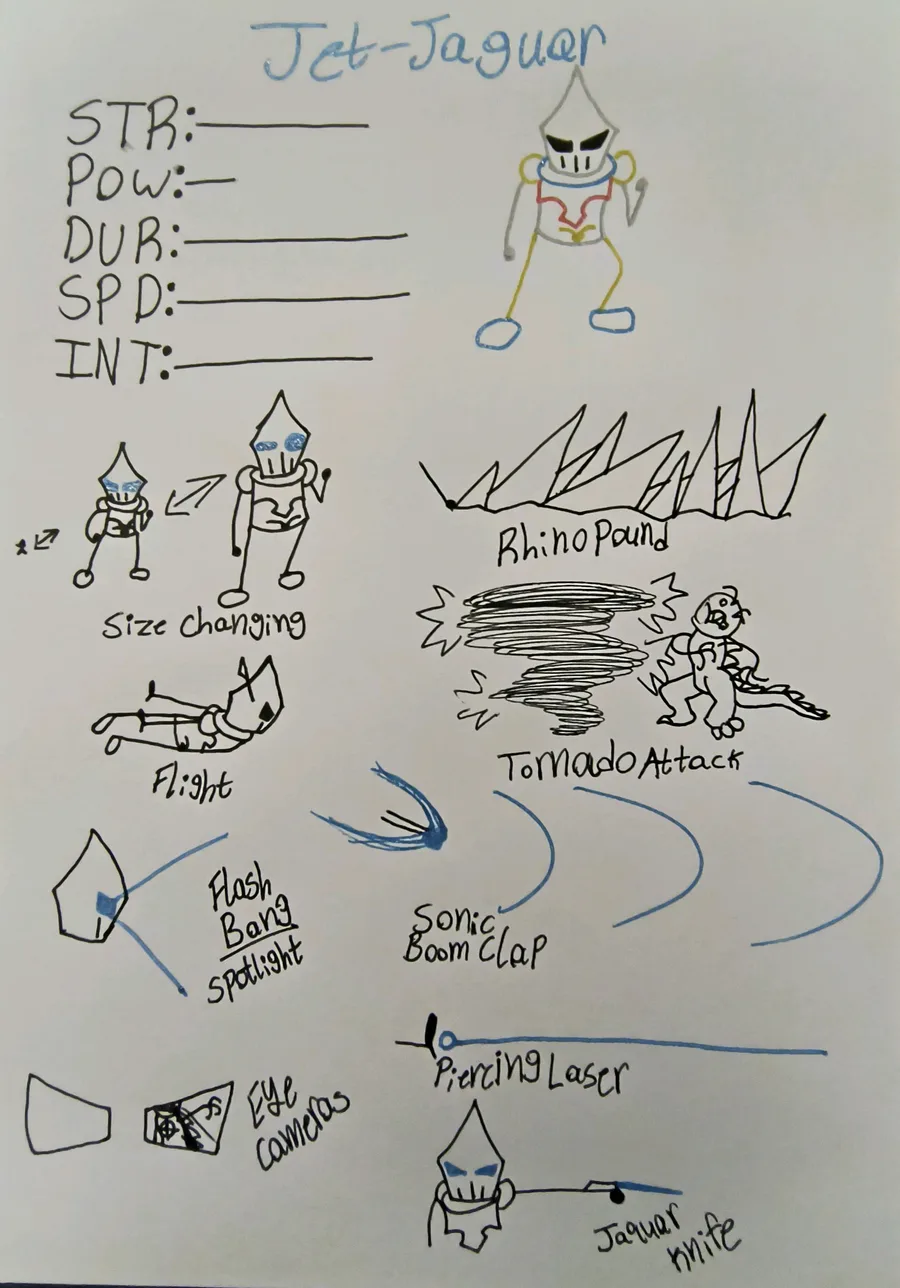 Jet-Jaguar
STR:
POW:
DUR:
SPD:
INT:
Size changing
Rhino Pound
Flight
Tornado Attack
Flash
Bang
Spotlight
Sonic
Boom Clap
Piercing Laser
Eye
Cameras
Jaguar
Knife